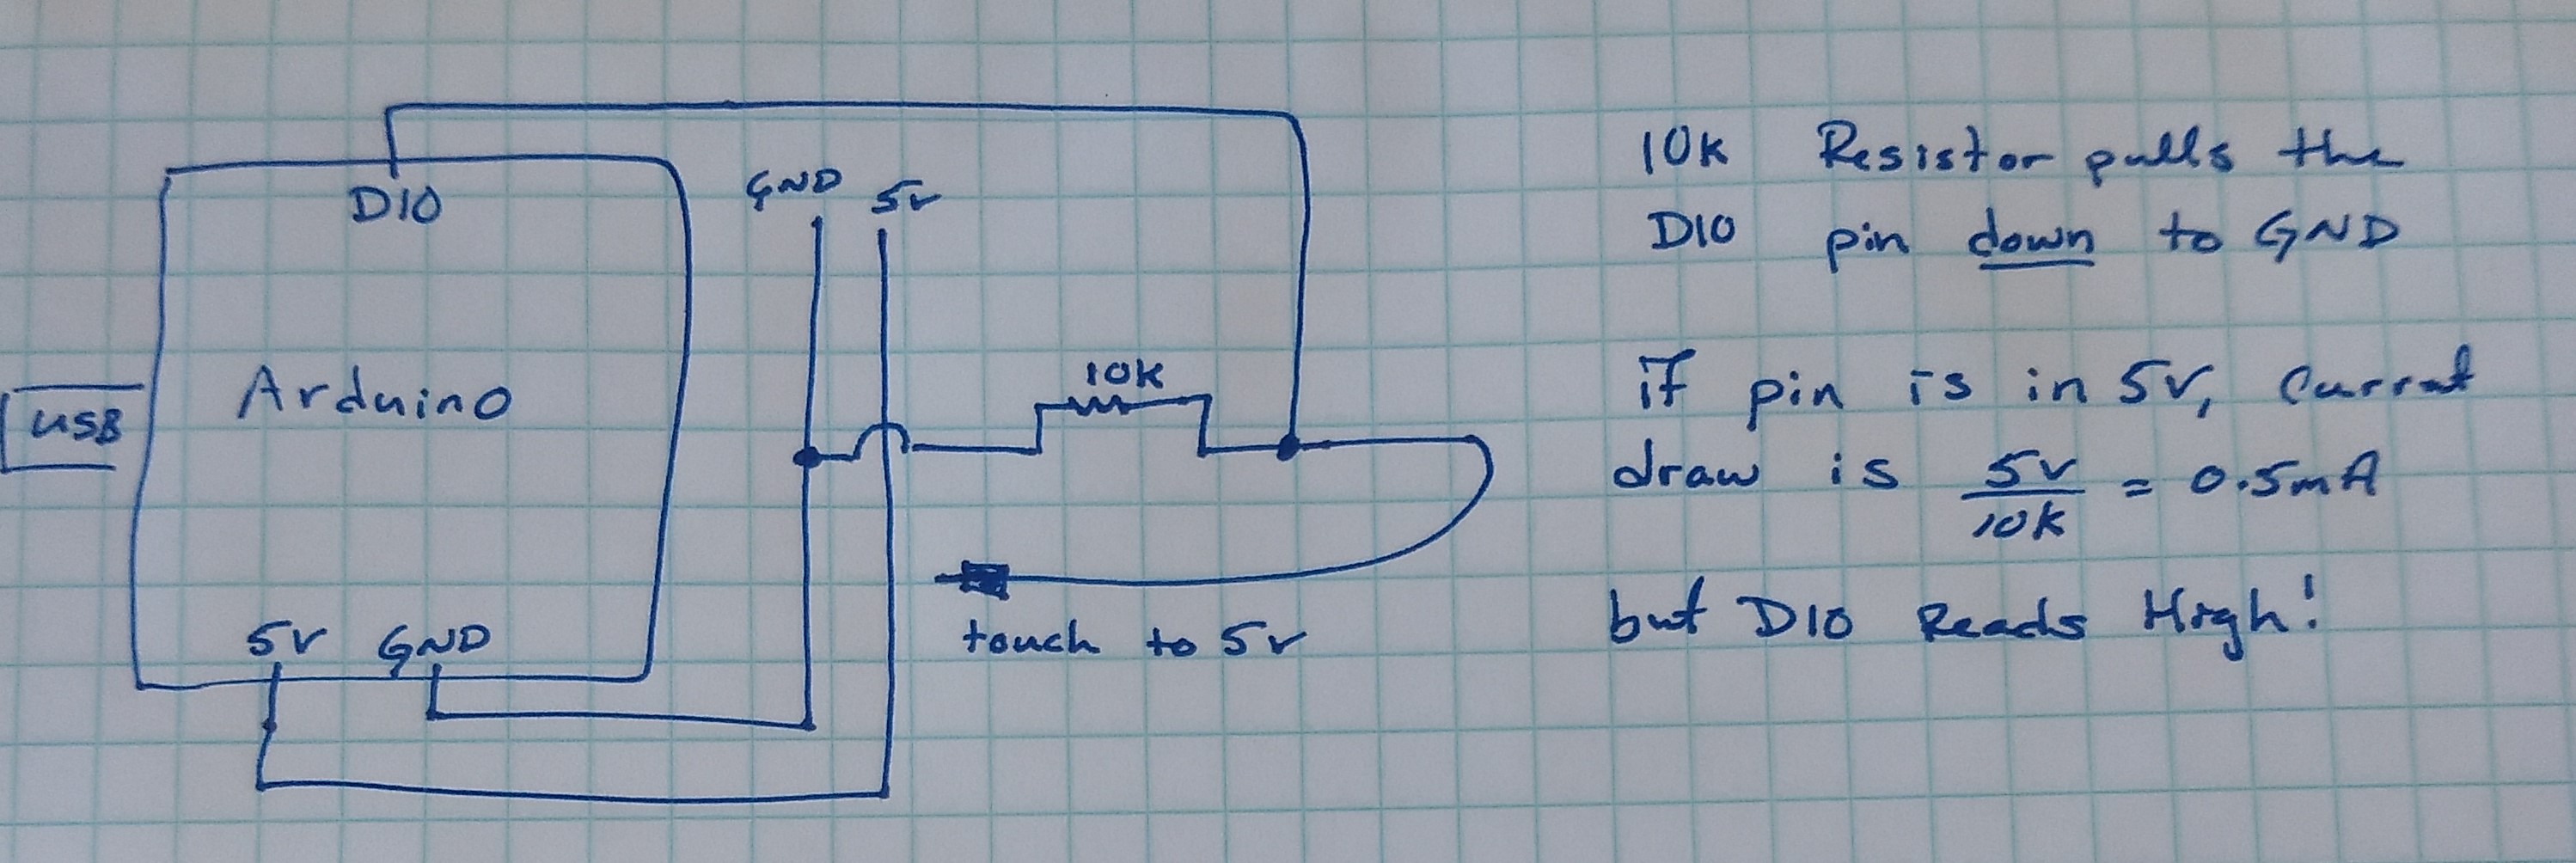 D10
GND 5v
10K
Arduino
USB
5V GND
touch to 5v
10K Resistor pulls the
D10 pin down to GND
if pin is in 5V, Current
draw is 5V/10K = 0.5mA
but D10 Reads High!